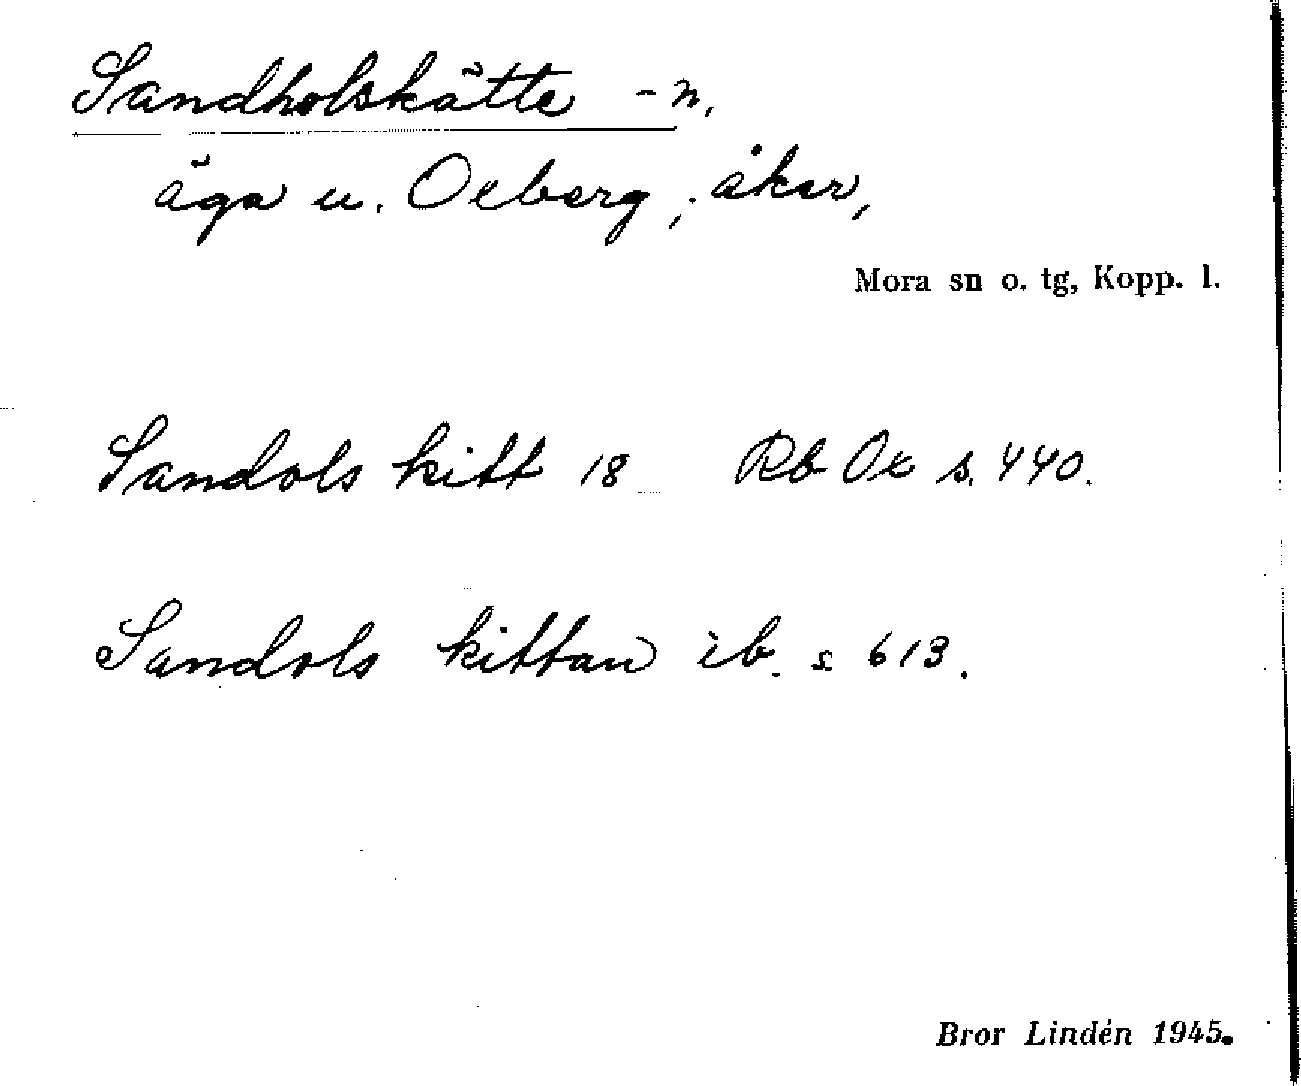 Sandholskätte -n,
äga u. Oxberg; åker,
Mora sn o. tg, Kopp. l.
Sandols kitt 18 Rb Ox s. 440.
Sandols kittan ib. s 613.
Bror Lindén 1945.